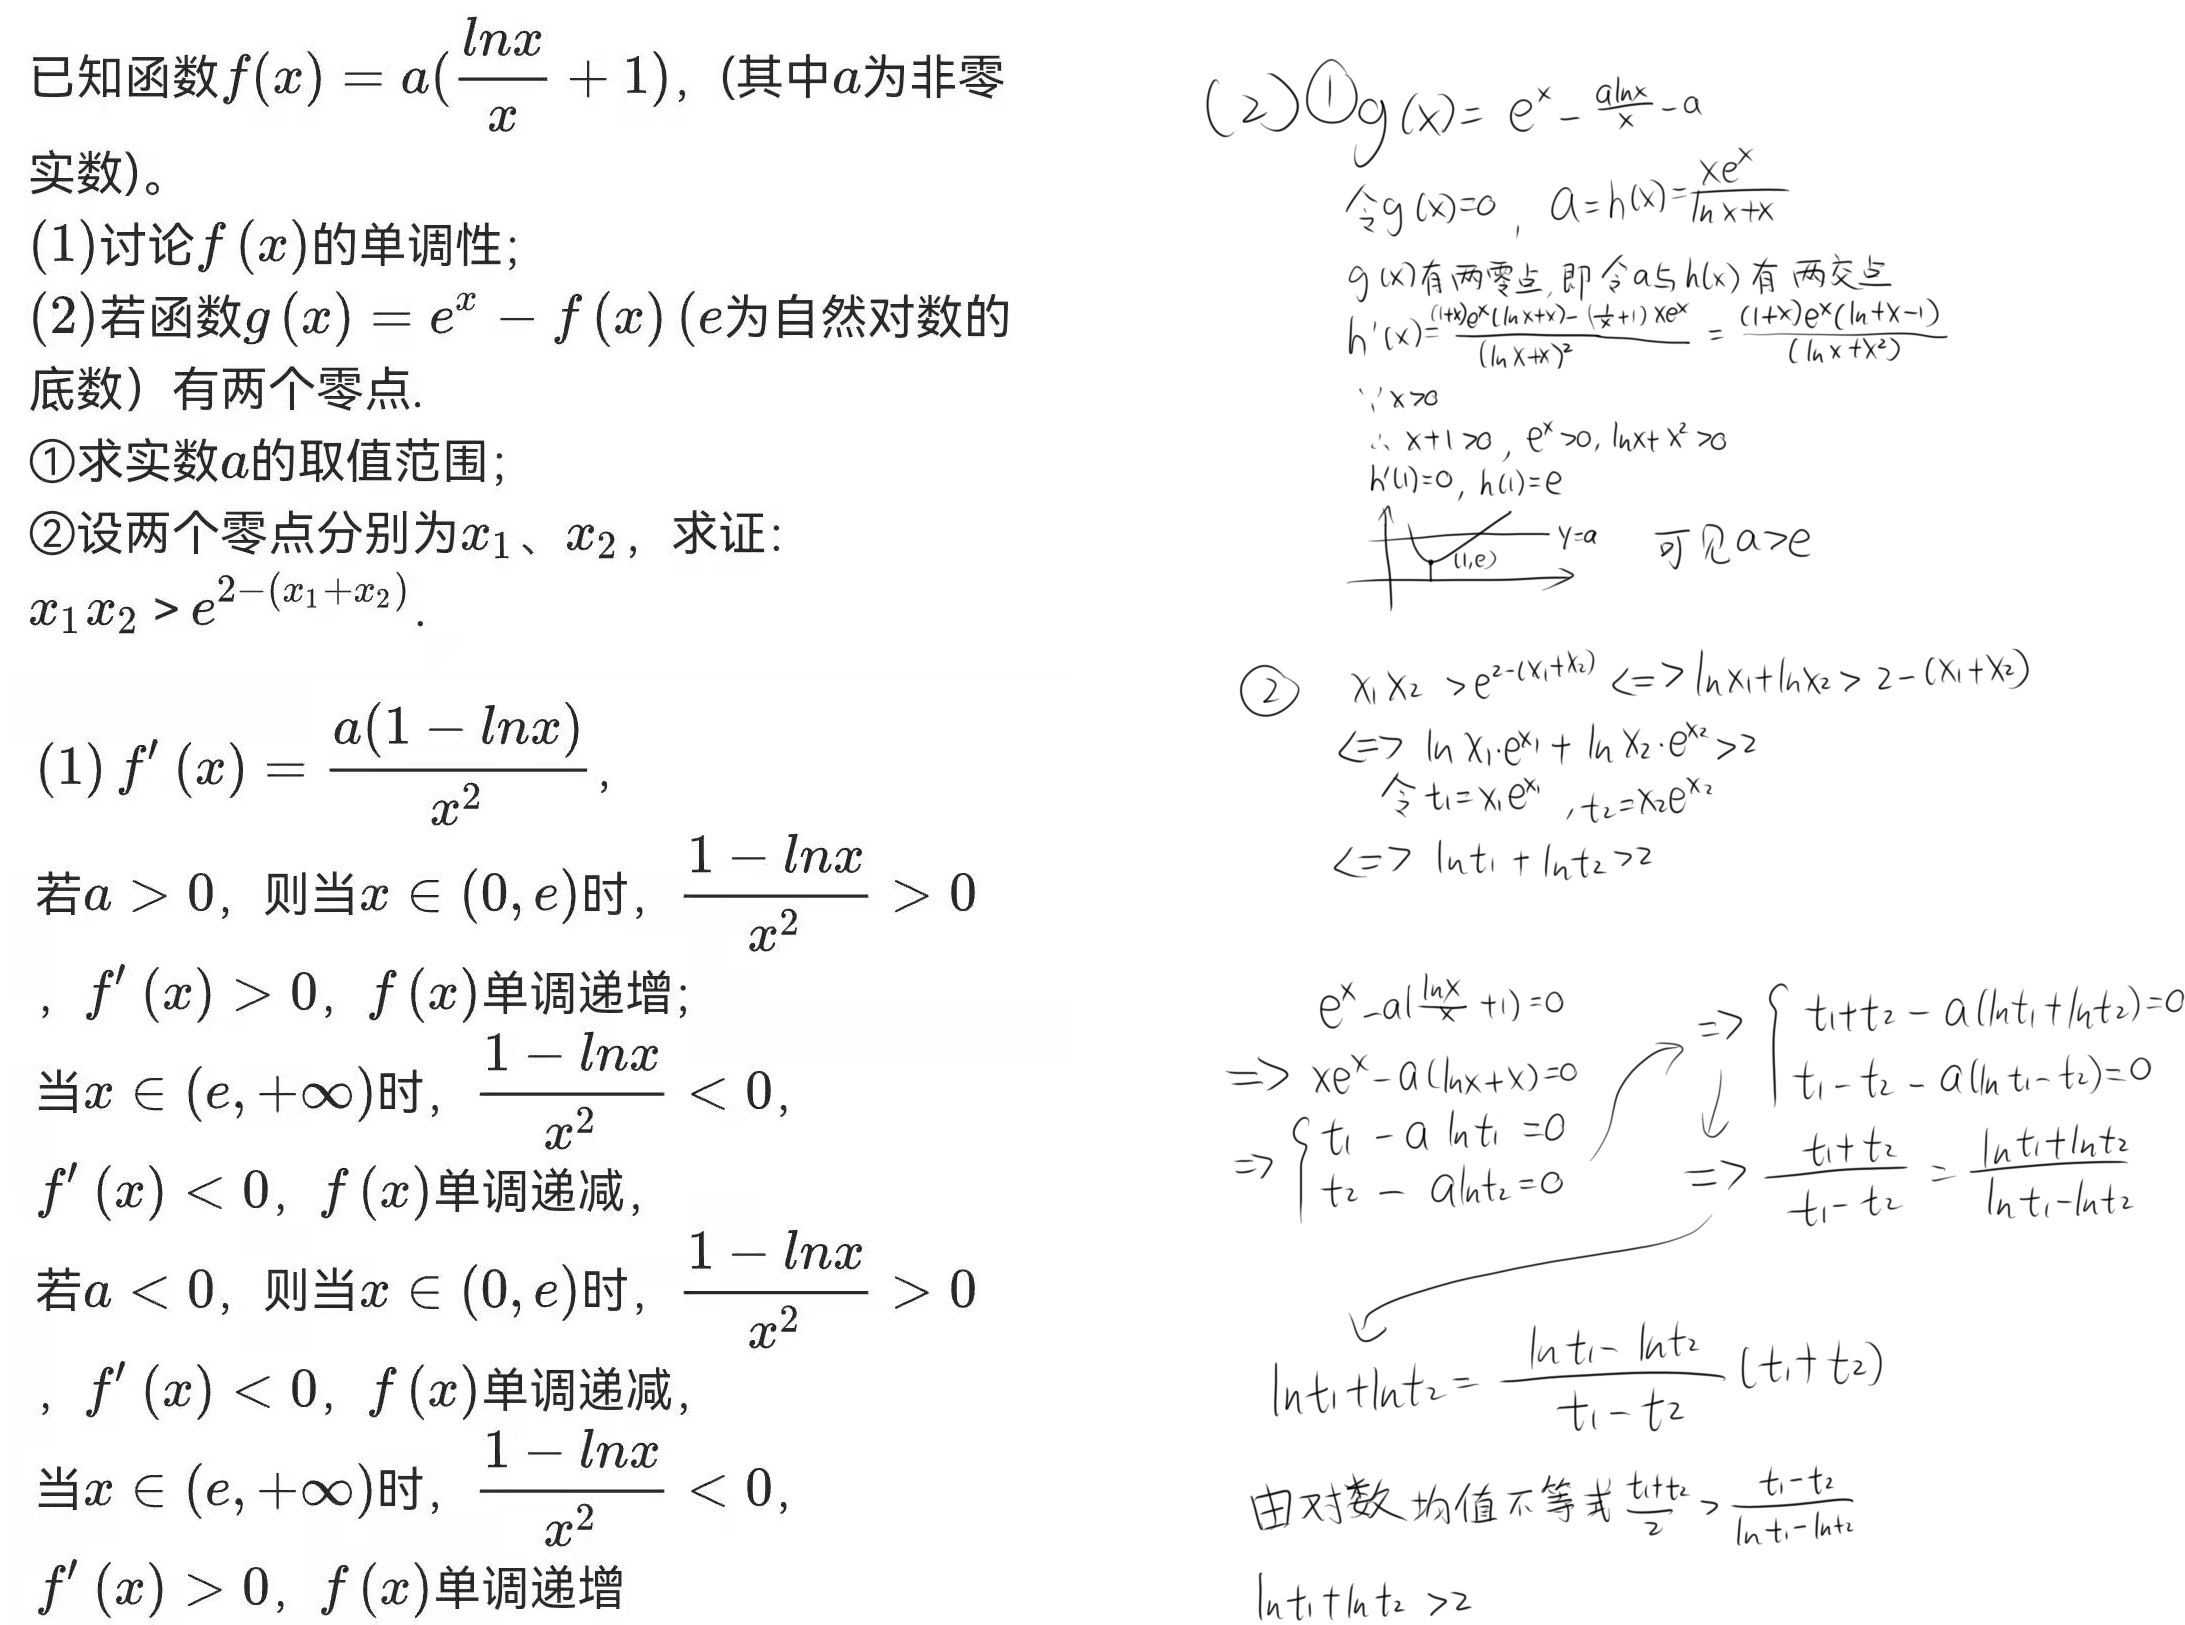 已知函数f(x) = a(lnx/x + 1)，(其中a为非零
实数)。
(1)讨论f(x)的单调性；
(2)若函数g(x) = e^x − f(x)(e为自然对数的
底数）有两个零点.
①求实数a的取值范围；
②设两个零点分别为x₁、x₂，求证：
x₁x₂ > e^{2−(x₁+x₂)}.
(1) f′(x) = a(1 − lnx)/x²，
若a > 0，则当x ∈ (0, e)时，(1 − lnx)/x² > 0
，f′(x) > 0，f(x)单调递增；
当x ∈ (e, +∞)时，(1 − lnx)/x² < 0，
f′(x) < 0，f(x)单调递减，
若a < 0，则当x ∈ (0, e)时，(1 − lnx)/x² > 0
，f′(x) < 0，f(x)单调递减，
当x ∈ (e, +∞)时，(1 − lnx)/x² < 0，
f′(x) > 0，f(x)单调递增
(2)①g(x) = e^x − alnx/x − a
令g(x)=0，a=h(x)=xe^x/(lnx+x)
g(x)有两零点,即令a与h(x)有两交点
h'(x)=((1+x)e^x(lnx+x)−(1/x+1)xe^x)/(lnx+x)² = (1+x)e^x(ln+x−1)/(lnx+x²)
∵x>0
∴x+1>0, e^x>0, lnx+x²>0
h'(1)=0, h(1)=e
y=a
(1,e)
可见a>e
② x₁x₂ >e^{2−(x₁+x₂)} <=> lnx₁+lnx₂ > 2−(x₁+x₂)
<=> ln x₁·e^{x₁} + ln x₂·e^{x₂} >2
令t₁=x₁e^{x₁}, t₂=x₂e^{x₂}
<=> lnt₁ + lnt₂ >2
e^x −a(lnx/x +1)=0
=> xe^x − a(lnx+x)=0
=> { t₁ − a lnt₁ =0
t₂ − alnt₂=0
=> { t₁+t₂ − a(lnt₁+lnt₂)=0
t₁−t₂ − a(ln t₁−t₂)=0
=> (t₁+t₂)/(t₁−t₂) = (lnt₁+lnt₂)/(lnt₁−lnt₂)
lnt₁+lnt₂ = (lnt₁− lnt₂)/(t₁−t₂) (t₁+t₂)
由对数均值不等式 (t₁+t₂)/2 > (t₁−t₂)/(lnt₁−lnt₂)
lnt₁+lnt₂ >2